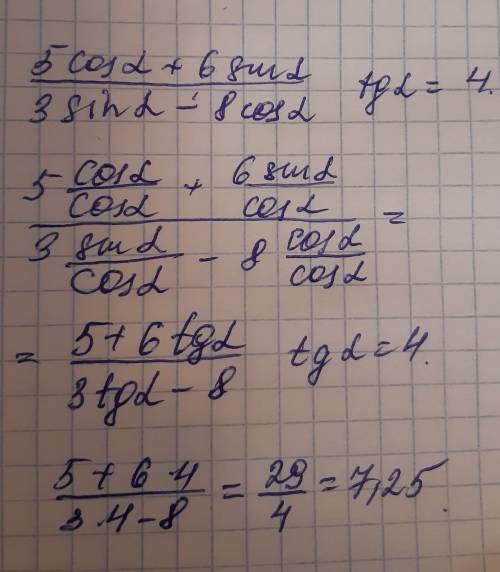 5 cosα + 6 sinα / 3 sinα - 8 cosα tgα = 4.
5 cosα/cosα + 6 sinα/cosα / 3 sinα/cosα - 8 cosα/cosα =
= 5 + 6 tgα / 3 tgα - 8 tgα = 4.
5 + 6 4 / 3 . 4 - 8 = 29/4 = 7,25.